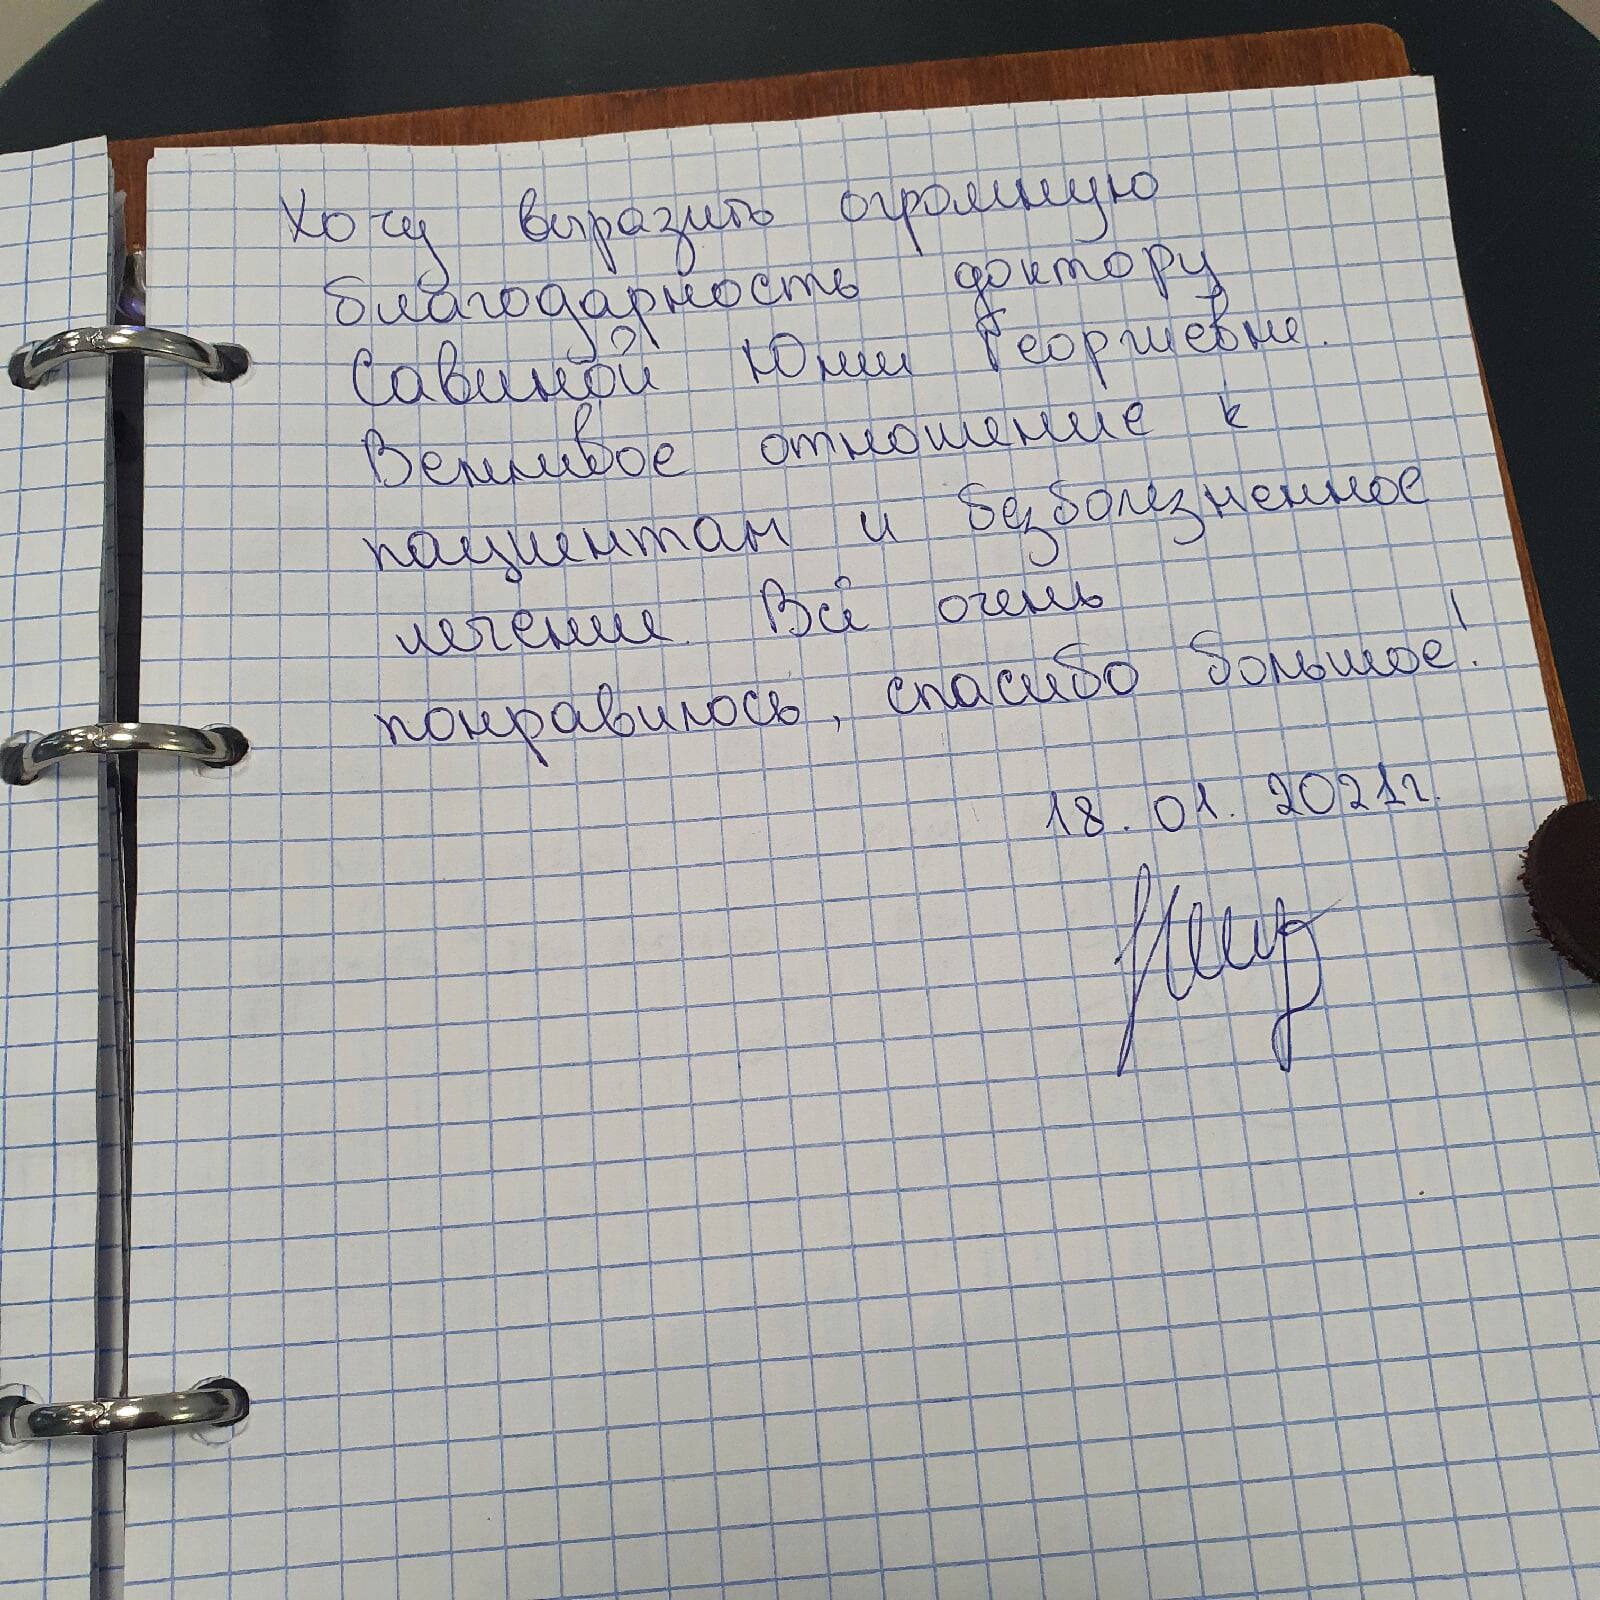 Хочу выразить огромную
благодарность доктору
Савиной Юлии Георгиевне.
Вежливое отношение к
пациентам и безболезненное
лечение. Всё очень
понравилось, спасибо большое!
18.01.2021г.